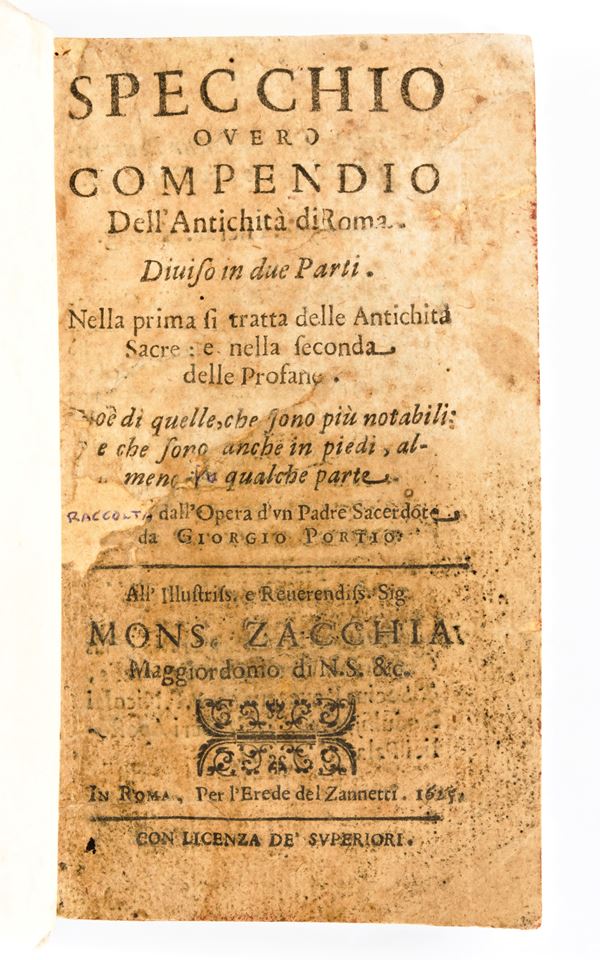 SPECCHIO
OVERO
COMPENDIO
Dell'Antichità di Roma.
Diuiſo in due Parti.
Nella prima ſi tratta delle Antichità
Sacre: e nella ſeconda
delle Profane.
di quelle, che ſono più notabili:
e che ſono anche in piedi, al-
meno qualche parte
RACCOLTA dall'Opera d'vn Padre Sacerdote
da GIORGIO PORTIO.
All' Illuſtriſs. e Reuerendiſs. Sig.
MONS. ZACCHIA
Maggiordomo di N.S. &c.
IN ROMA, Per l'Erede del Zannetti. 1625.
CON LICENZA DE' SVPERIORI.